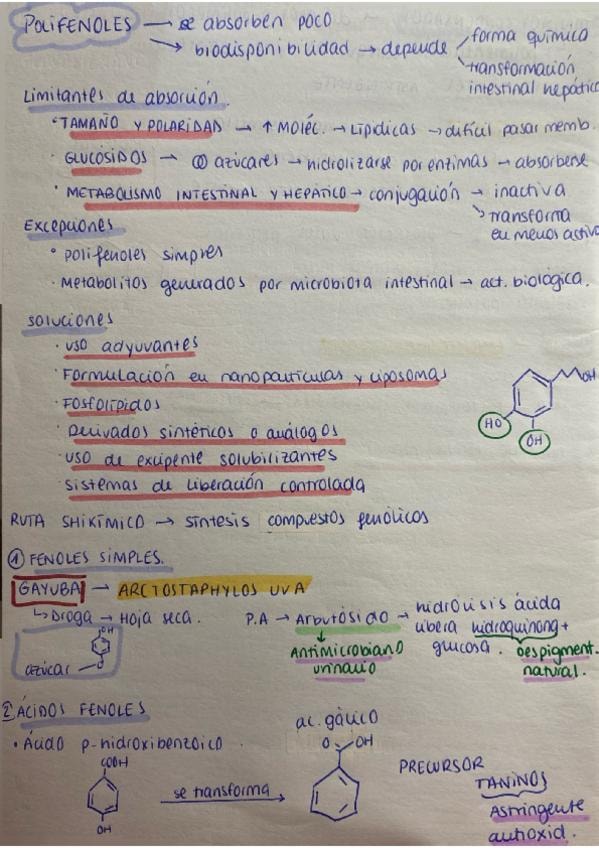 POLIFENOLES → se absorben poco
→ biodisponibilidad → depende forma química
transformación
intestinal hepática
Limitantes de absorción.
· TAMAÑO Y POLARIDAD → ↑ MOléc. → Lipídicas → difícil pasar memb.
· GLUCÓSIDOS → azúcares → hidrolizarse por enzimas → absorbene
· METABOLISMO INTESTINAL Y HEPÁTICO → conjugación → inactiva
transforma
en menos activo
Excepciones
° polifenoles simples
· Metabolitos generados por microbiota intestinal → act. biológica.
soluciones
· uso adyuvantes
· Formulación en nanopartículas y liposomas
· Fosfolípidos
· Derivados sintéticos o análogos
· uso de excipente solubilizantes
· sistemas de liberación controlada
OH
HO
OH
RUTA SHIKÍMICO → síntesis compuestos fenólicos
① FENOLES SIMPLES.
GAYUBA → ARCTOSTAPHYLOS UVA
↳ Droga → Hoja seca. P.A → Arbutósido → hidrólisis ácida
libera hidroquinona +
glucosa. Despigment.
natural.
Antimicrobiano
urinario
OH
O
azúcar
② ÁCIDOS FENOLES
· Ácido p-hidroxibenzoico.
COOH
OH
se transforma →
ac. gálico
O OH
PRECURSOR
TANINOS
Astringente
antioxid.